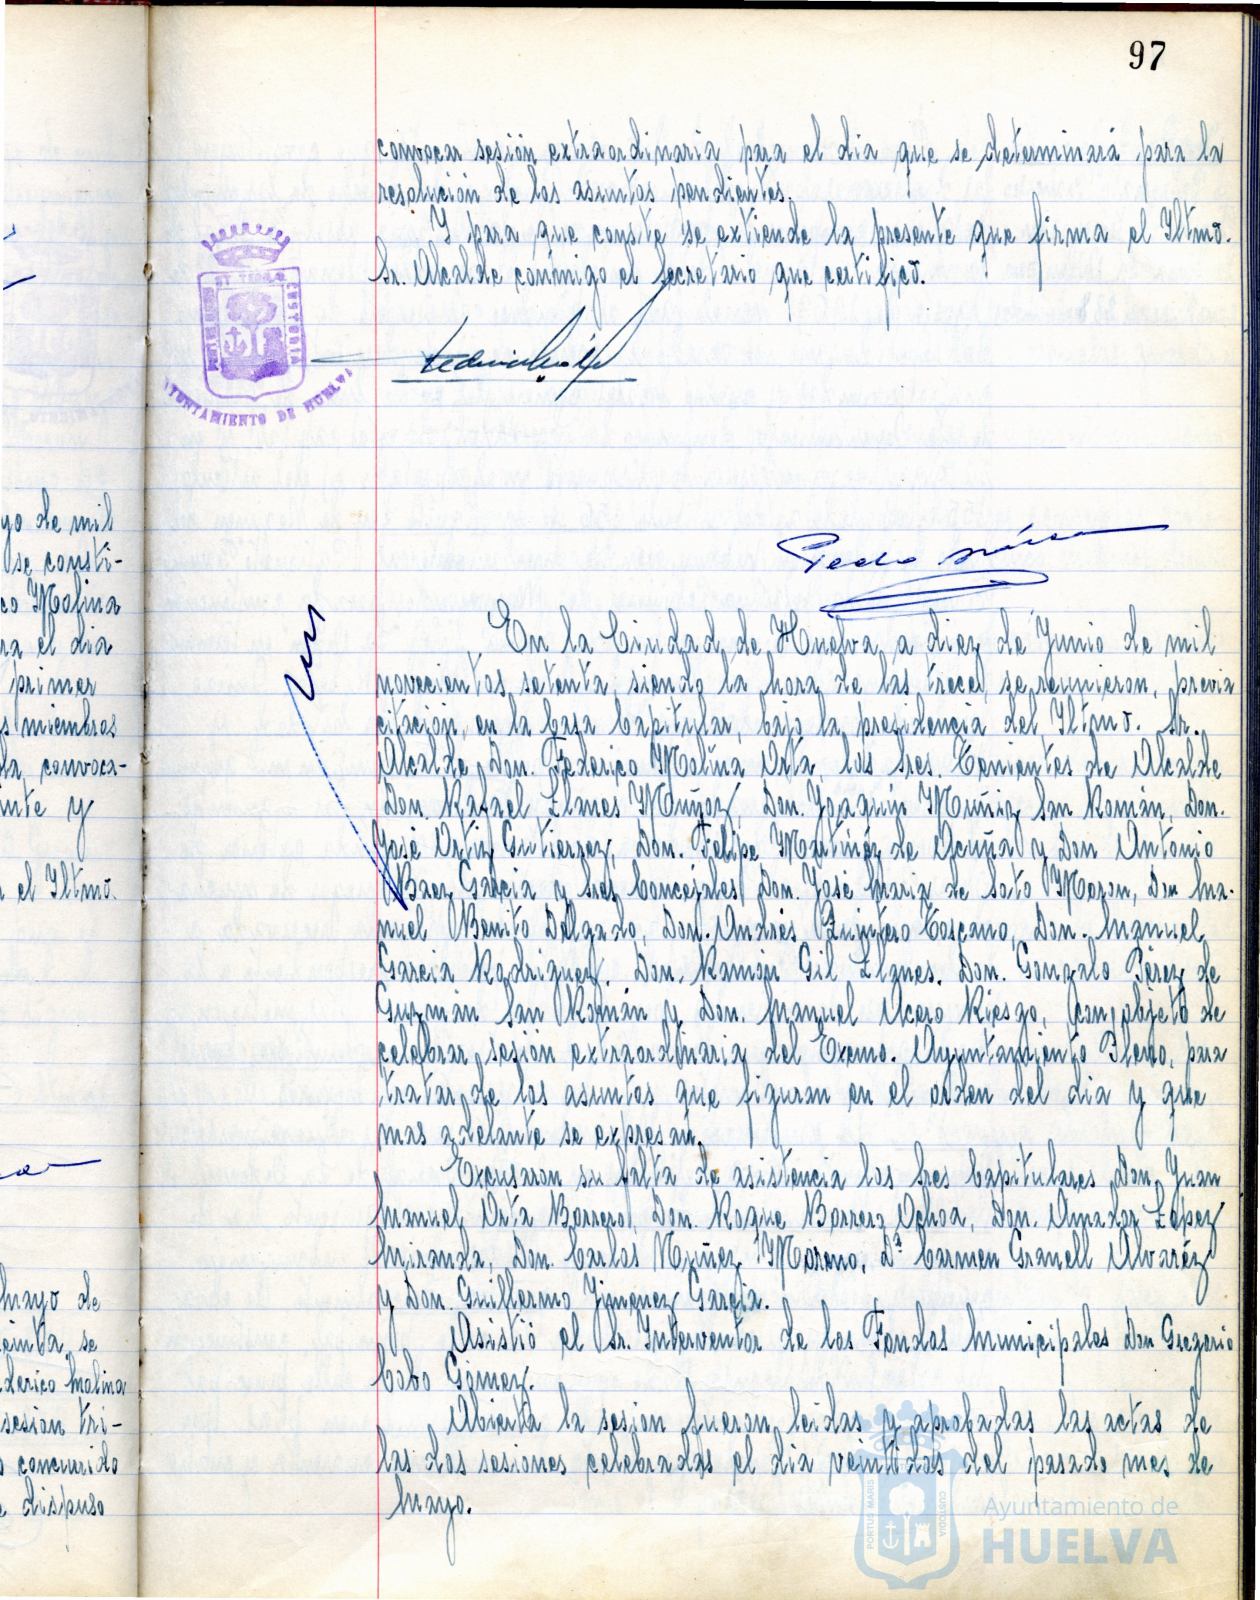 97
convocar sesión extraordinaria para el dia que se determinará para la
resolución de los asuntos pendientes.
Y para que conste se extiende la presente que firma el Iltmo.
Sr. Alcalde conmigo el Secretario que certifico.
CUSTODIA
AYUNTAMIENTO DE HUELVA
Pedro
En la Ciudad de Huelva a diez de Junio de mil
novecientos setenta, siendo la hora de las trece, se reunieron, previa
citación, en la Casa Capitular, bajo la presidencia del Iltmo. Sr.
Alcalde Don. Federico Molina Orta, los Sres. Tenientes de Alcalde
Don. Rafael Llanes Muñoz, Don. Joaquín Muñiz San Román, Don.
José Ortiz Gutierrez, Don. Felipe Martínez de Acuña y Don Antonio
Baez Garcia y Sres Concejales Don. José Maria de Soto Moron, Don Ma-
nuel Benito Delgado, Don. Andrés Quintero Toscano, Don. Manuel
Garcia Rodriguez. Don. Ramón Gil Llanes. Don. Gonzalo Pérez de
Guzmán San Román y Don. Manuel Acero Riesgo, con objeto de
celebrar sesión extraordinaria del Excmo. Ayuntamiento Pleno, para
tratar de los asuntos que figuran en el orden del dia y que
mas adelante se expresan.
Excusaron su falta de asistencia los Sres Capitulares Don. Juan
Manuel Orta Borrero, Don. Roque Barrera Ochoa, Don. Amador López
Miranda, Don. Carlos Nuñez Moreno, Dª Carmen Granell Alvaréz
y Don. Guillermo Jimenez Garcia.
Asistió el Sr. Interventor de los Fondos Municipales Don Gregorio
Cobo Gómez.
Abierta la sesion fueron leidas y aprobadas las actas de
las dos sesiones celebradas el dia veintidos del pasado mes de
Mayo.
yo de mil
se consti-
co Molina
ra el dia
primer
s miembros
da convoca-
nte y
r el Iltmo.
Mayo de
einta, se
derico Molina
sesion tri-
o concurido
e dispuso
PORTUS MARIS
CUSTODIA
Ayuntamiento de
HUELVA